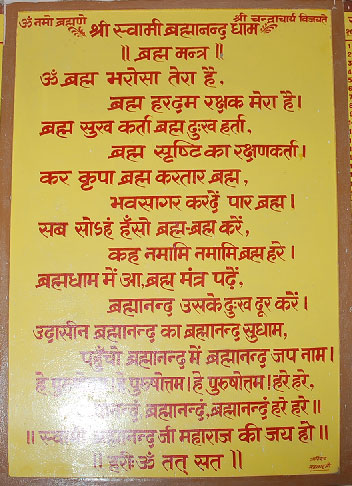 ॐ नमो ब्रह्मणे श्री स्वामी ब्रह्मानन्द धाम श्री चन्द्राचार्य विजयते
॥ ब्रह्म मन्त्र ॥
ॐ ब्रह्म भरोसा तेरा है,
ब्रह्म हरदम रक्षक मेरा है।
ब्रह्म सुख कर्ता ब्रह्म दुःख हर्ता,
ब्रह्म सृष्टि का रक्षणकर्ता।
कर कृपा ब्रह्म करतार ब्रह्म,
भवसागर करदें पार ब्रह्म।
सब सोऽहं हँसो ब्रह्म-ब्रह्म करें,
कह नमामि नमामि ब्रह्म हरे।
ब्रह्मधाम में आ, ब्रह्म मंत्र पढ़ें,
ब्रह्मानन्द उसके दुःख दूर करें।
उदासीन ब्रह्मानन्द का ब्रह्मानन्द सुधाम,
पहुँचो ब्रह्मानन्द में ब्रह्मानन्द जप नाम।
हे पुरुषोत्तम। हे पुरुषोत्तम। हे पुरुषोत्तम। हरे हरे,
ब्रह्मानन्दं ब्रह्मानन्दं, ब्रह्मानन्दं हरे हरे॥
॥ स्वामी ब्रह्मानन्द जी महाराज की जय हो ॥
॥ हरीः ॐ तत् सत ॥